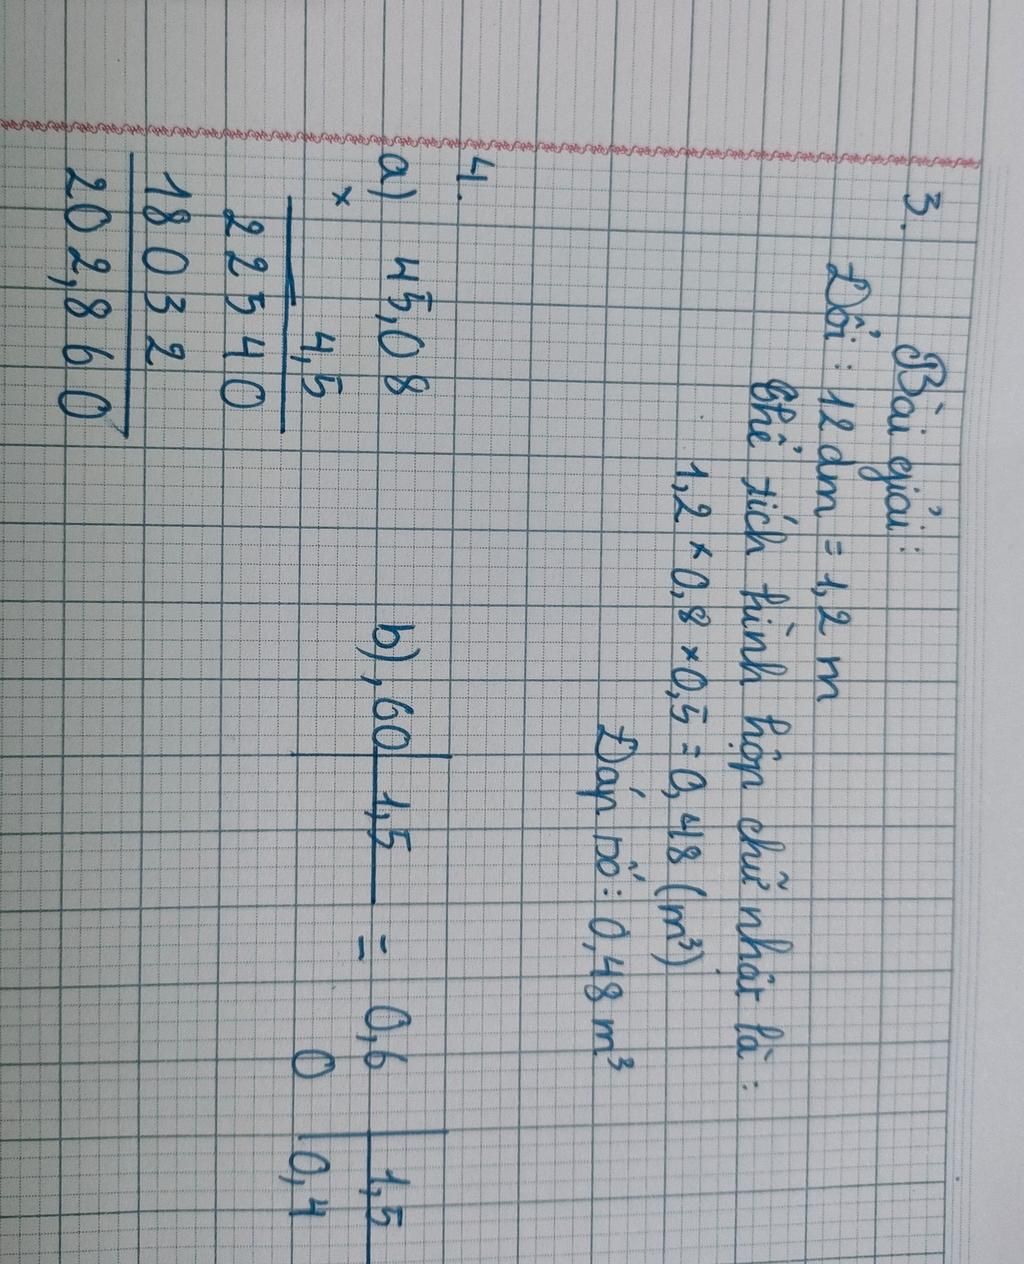 3.
Bài giải:
Đổi: 12 dm = 1,2 m
Thể tích hình hộp chữ nhật là:
1,2 × 0,8 × 0,5 = 0,48 (m³)
Đáp số: 0,48 m³
4.
a) 45,08 b) ,60 | 1,5 = 0,6 | 1,5
× 4,5 0 | 0,4
22540
18032
202,860